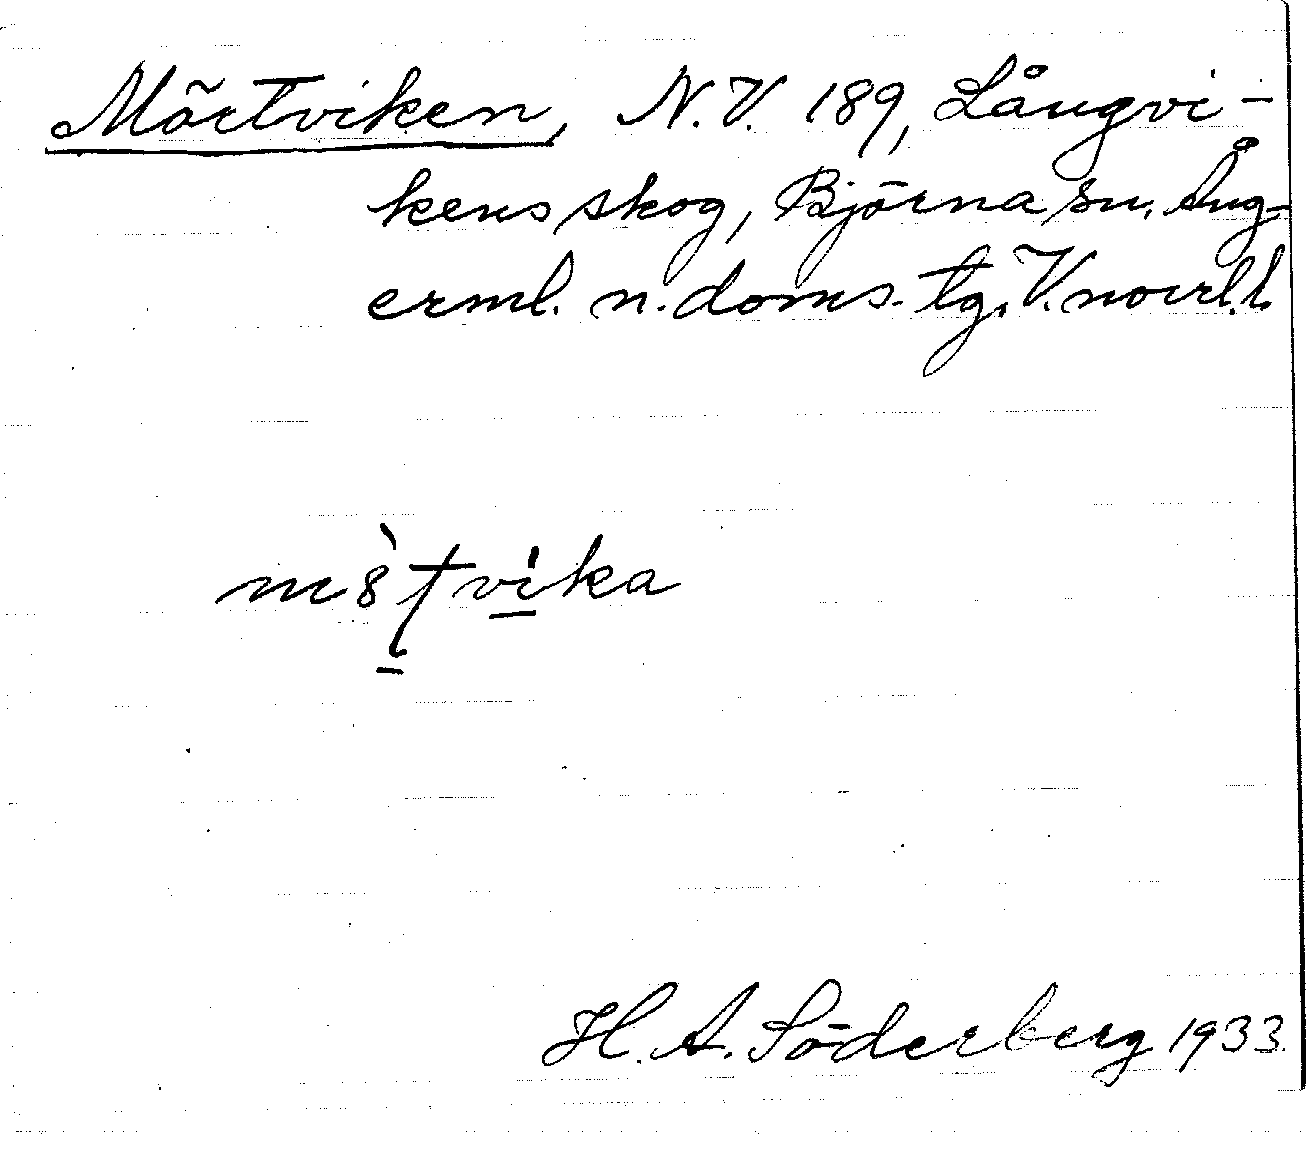 Mörtviken, N.V. 189, Långvi-
kens skog, Björna sn. Ång-
erml. n. doms. tg. V. norrl. l.
m8̀ʈvi̠̍ka
H. A. Söderberg 1933.